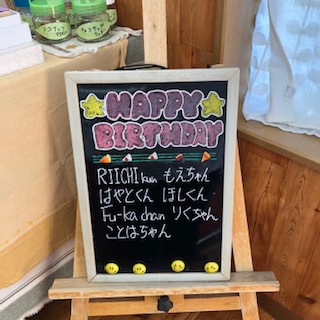 HAPPY
BIRTHDAY
RIICHI kun もえちゃん
はやとくん ほしくん
Fu-ka chan りくちゃん
ことはちゃん